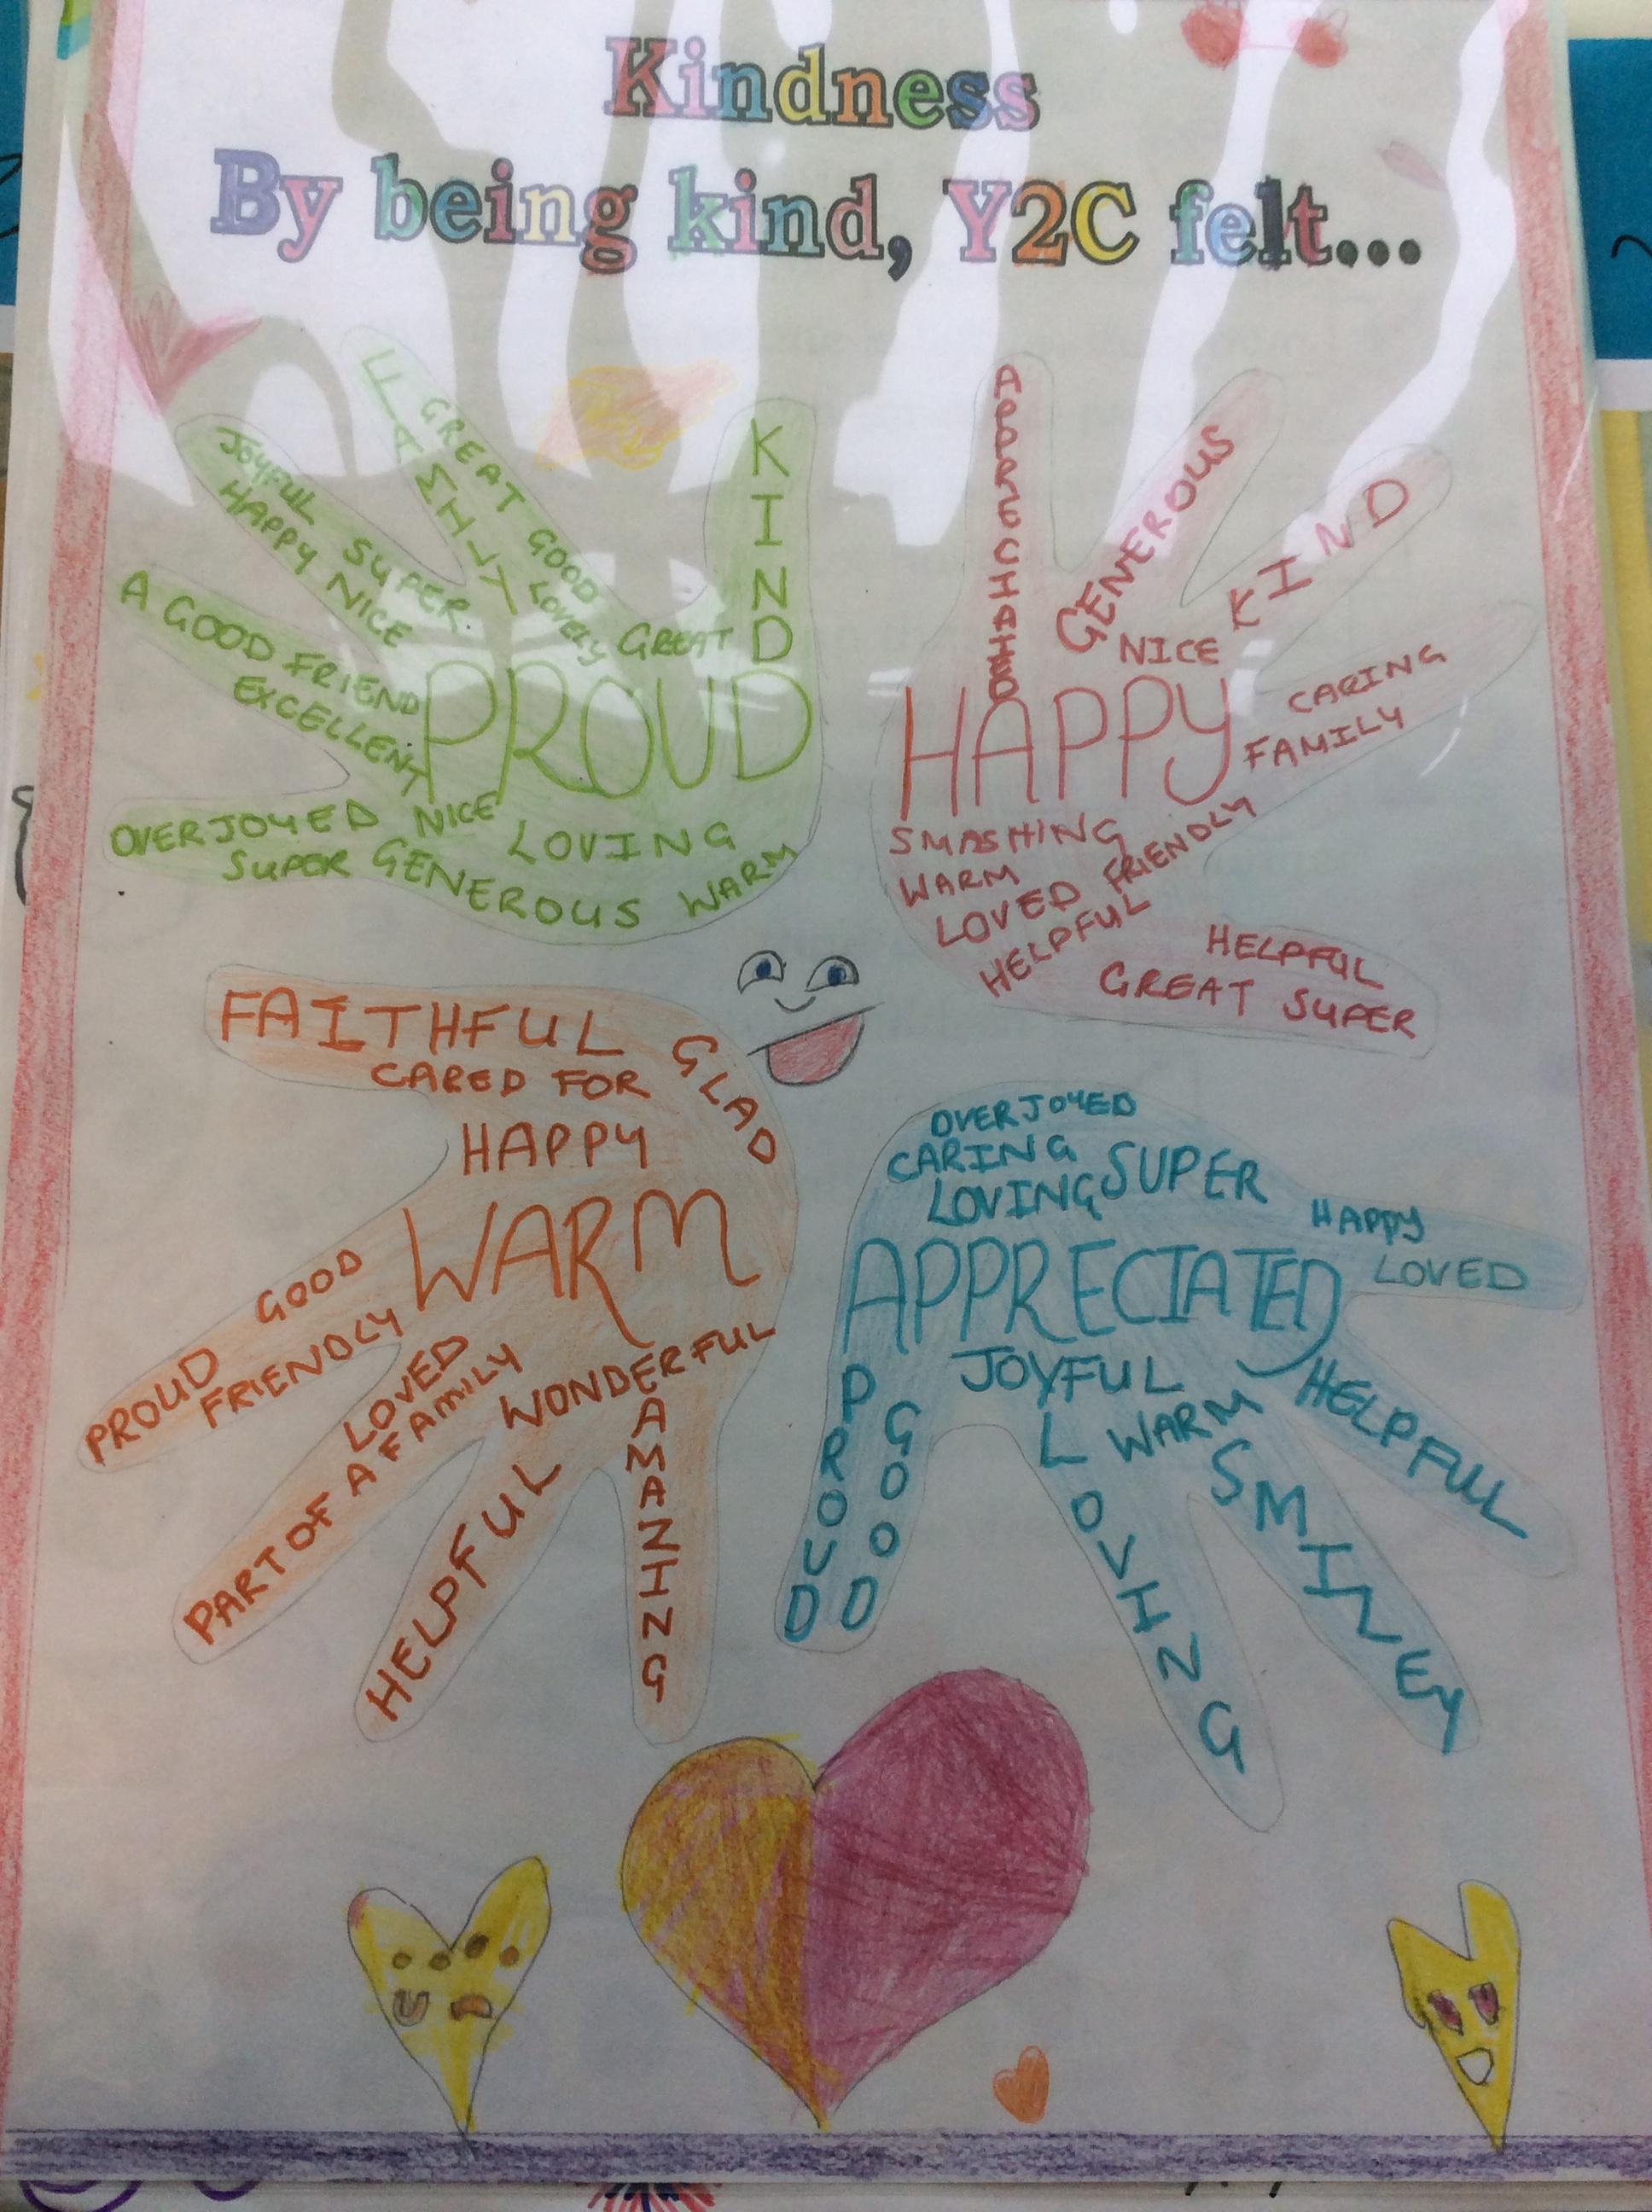 Kindness
By being kind, Y2C felt...
FAMILY
GREAT GOOD
LOVELY
JOYFUL SUPER
HAPPY NICE
A GOOD FRIEND
EXCELLENT
GREAT
KIND
PROUD
OVERJOYED NICE
LOVING
SUPER GENEROUS WARM
APPRECIATED
GENEROUS
KIND
NICE
CARING
FAMILY
HAPPY
SMASHING
WARM
LOVED FRIENDLY
HELPFUL
HELPFUL
GREAT SUPER
FAITHFUL
CARED FOR
GLAD
HAPPY
WARM
GOOD
PROUD
FRIENDLY
LOVED
PART OF A FAMILY
WONDERFUL
HELPFUL
AMAZING
OVERJOYED
CARING
LOVING SUPER
HAPPY
LOVED
APPRECIATED
JOYFUL
PROUD
GOOD
LOVING
WARM
SMILEY
HELPFUL